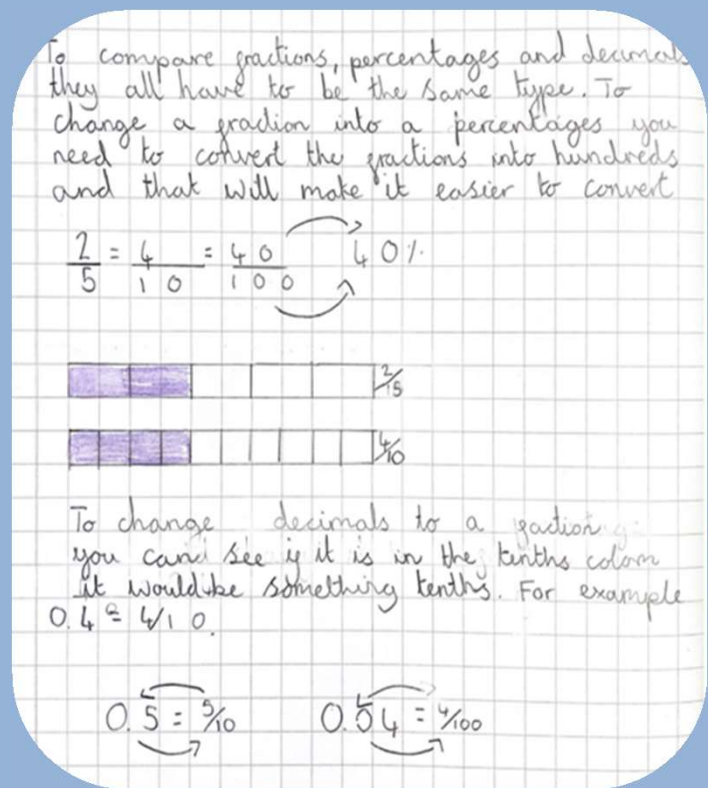 To compare fractions, percentages and decimals
they all have to be the same type. To
change a fraction into a percentages you
need to convert the fractions into hundreds
and that will make it easier to convert
2/5 = 4/10 = 40/100 40%
2/5
4/10
To change decimals to a faction
you can see if it is in the tenths colom
it would be something tenths. For example
0.4 = 4/10.
0.5 = 5/10 0.04 = 4/100